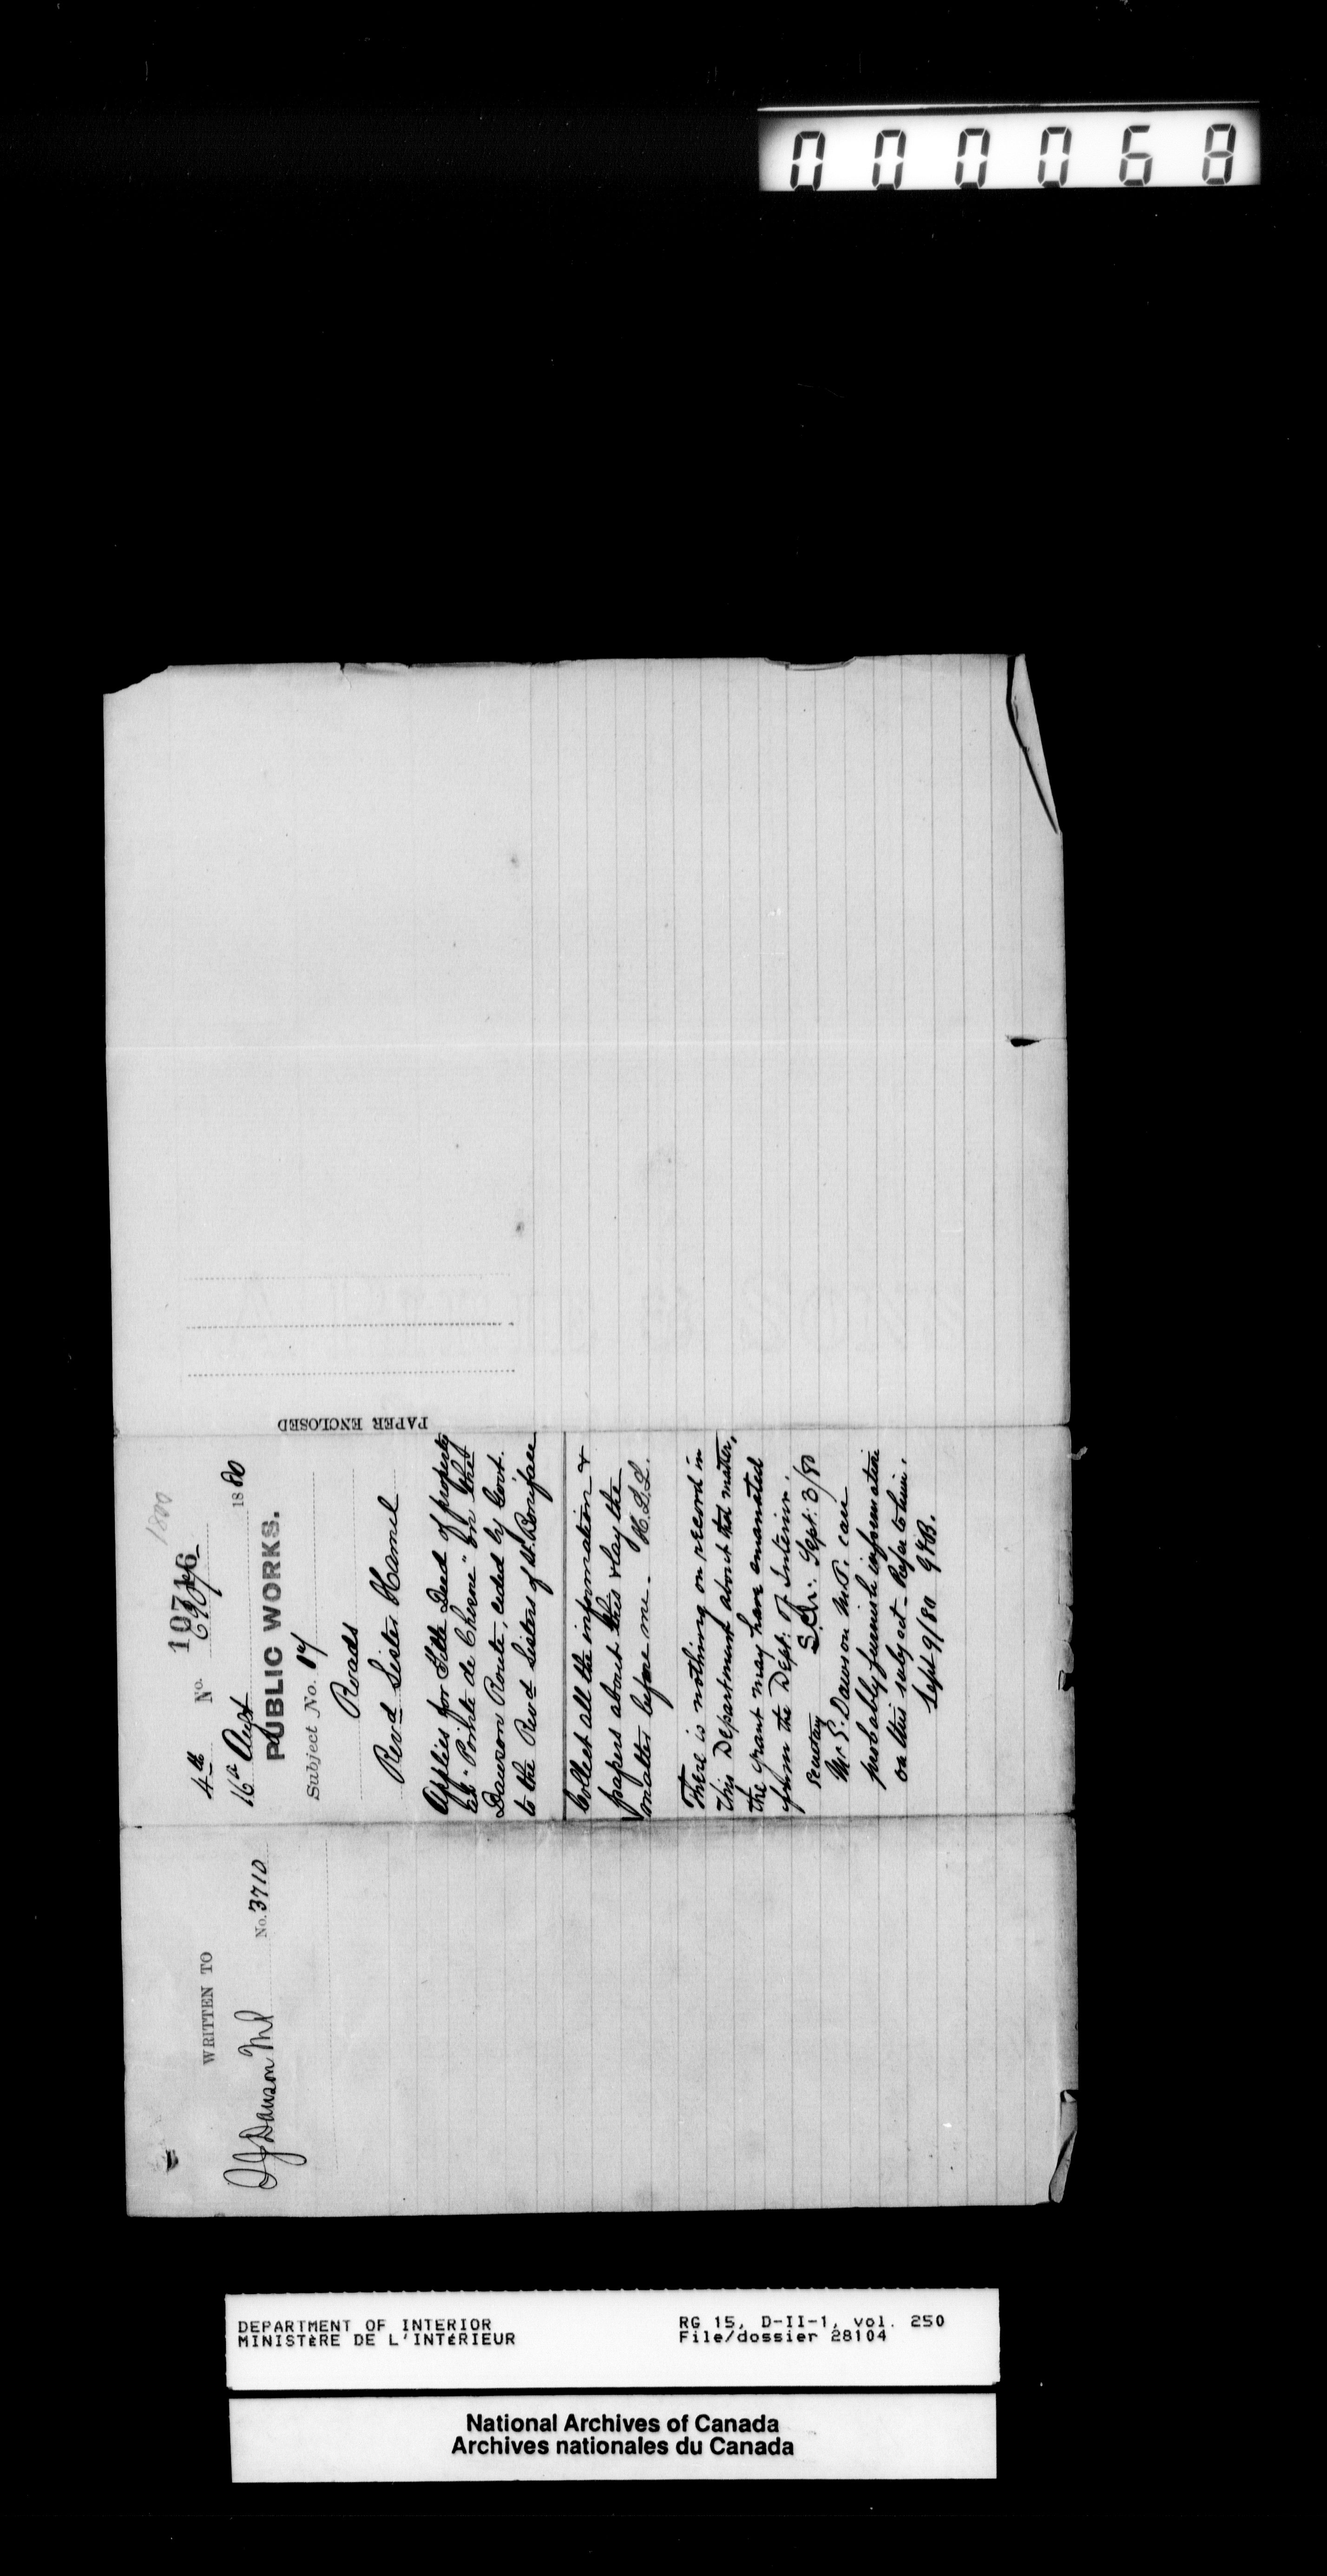 000068
1880
4th No. 10716
16th Augt 1880
PUBLIC WORKS.
Subject No. 17
Roads
Revd Sister Hamel
Applies for Title Deed of property
at "Pointe de Chêne" on the
Dawson Route, ceded by Govt.
to the Revd Sisters of St. Boniface
Collect all the information &
papers about this & lay the
matter before me. H.L.L.
There is nothing on record in
this Department about that matter,
the grant may have emanated
from the Dept: of Interior.
Secretary Sept: 3/80
Mr S. Dawson M.P. can
probably furnish information
on this subject - Refer to him.
Sept 9/80 G.F.B.
PAPER ENCLOSED
WRITTEN TO
SJ Dawson MP No. 3710
DEPARTMENT OF INTERIOR
MINISTèRE DE L'INTéRIEUR
RG 15, D-II-1, vol. 250
File/dossier 28104
National Archives of Canada
Archives nationales du Canada